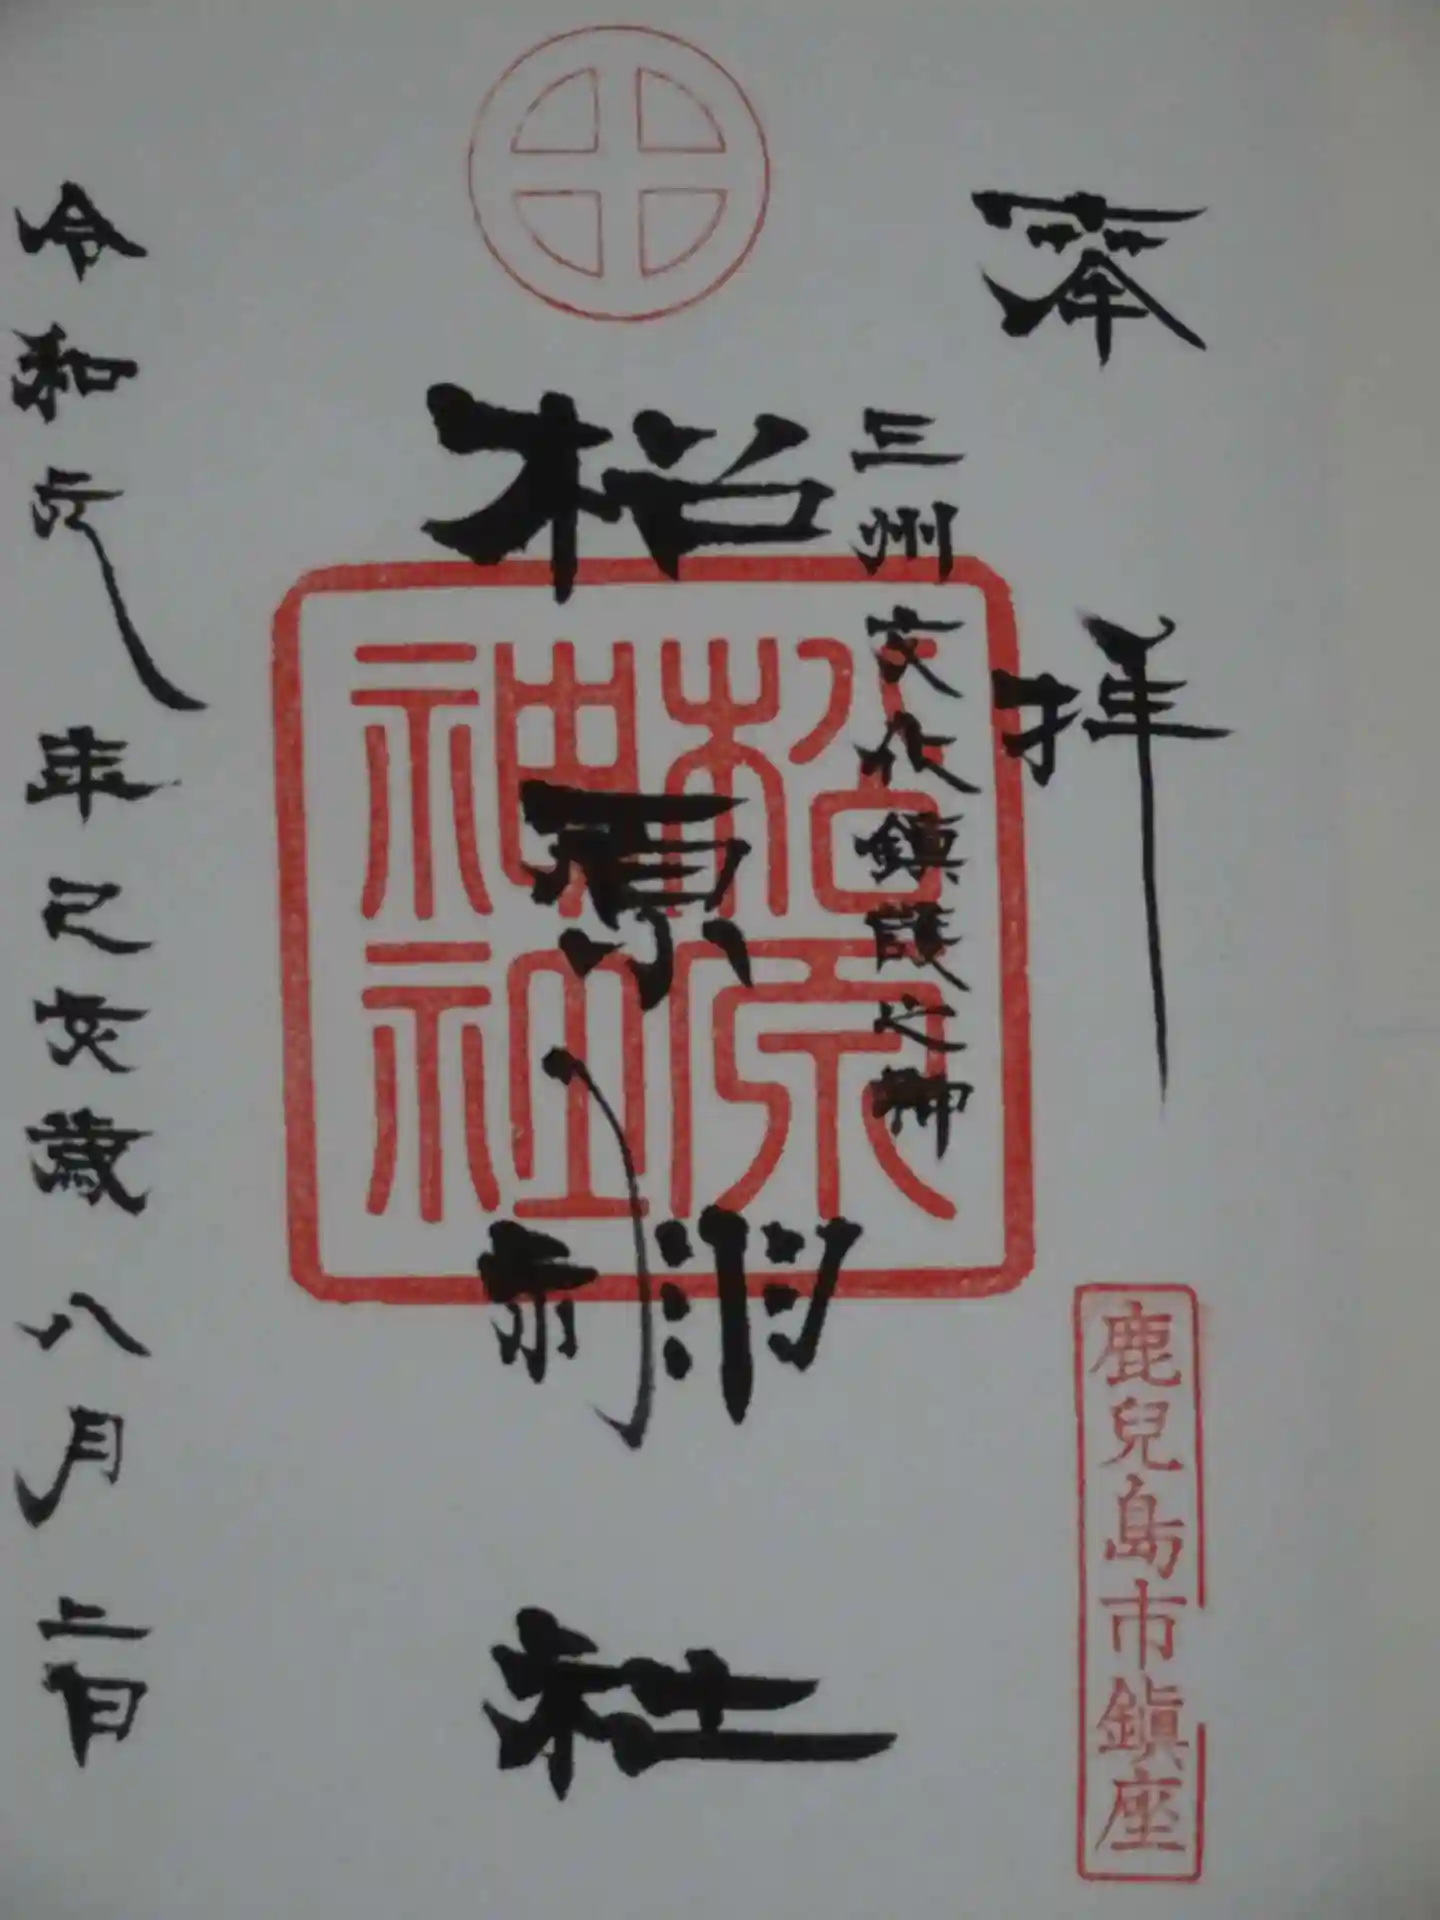 奉拝
鹿兒島市鎮座
三州文化鎮護之神
松原神社
松原神社
令和元年己亥歳八月二日